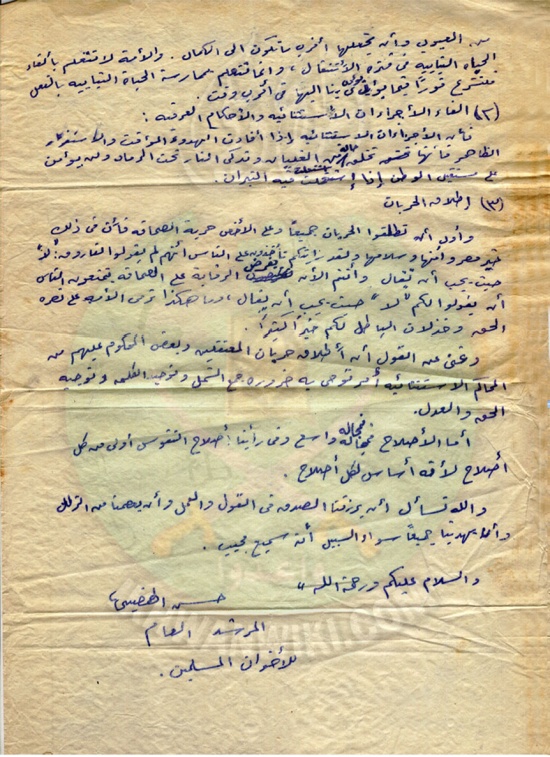 من العيوب وأن تجعلها أقرب ما تكون الى الكمال . والأمة لا تتعلم بألغاء
الحياة النيابية فى فترة الأنتقال ، وانما تتعلم بممارسة الحياة النيابية بالفعل
فلنشرع فورًا فيما يؤدى بنا اليها فى أقرب وقت
(٢) الغاء الأجراءات الأستثنائية والأحكام العرفية :
فأن الأجراءات الاستثنائية إذا أفادت الهدوء المؤقت والاستقرار
الظاهر فأنها تخلق حالة من الغليان وتذكى النار تحت الرماد ولن يؤمن
على مستقبل الوطن إذا إشتعلت فيه النيران .
(٣) إطلاق الحريات
وأول أن تطلقوا الحريات جميعًا وعلى الأخص حرية الصحافة فأن فى ذلك
خير مصر وأمنها وسلامتها ولقد تأخذون على الناس أنهم لم يقولوا لفاروق "لا"
حيث يجب أن تقال وأنتم الأن بفرض الرقابة على الصحافة تمنعون الناس
أن يقولوا لكم "لا" حيث يجب أن يقال ، وما هكذا تربى الأمة على نصرة
الحق وخذلان الباطل لكم خيرًا كثيرًا .
وغنى عن القول أن أطلاق حريات المعتقلين وبعض المحكوم عليهم من
المحاكم الاستثنائية أمر توحى به ضرورة جمع الشمل وتوحيد الكلمة وتوخيه
الحق والعدل.
أما الأصلاح فمجاله واسع وفى رأينا إصلاح النفوس أولى من كل
أصلاح لأنه أساس لكل أصلاح .
والله نسأل أن يرزقنا الصدق فى القول والعمل وأن يعصمنا من الزلل
وأن يهدينا جميعًا سواء السبيل أنه سميع مجيب .
والسلام عليكم ورحمة الله ،،
حسن الهضيبى
المرشد العام
للأخوان المسلمين .